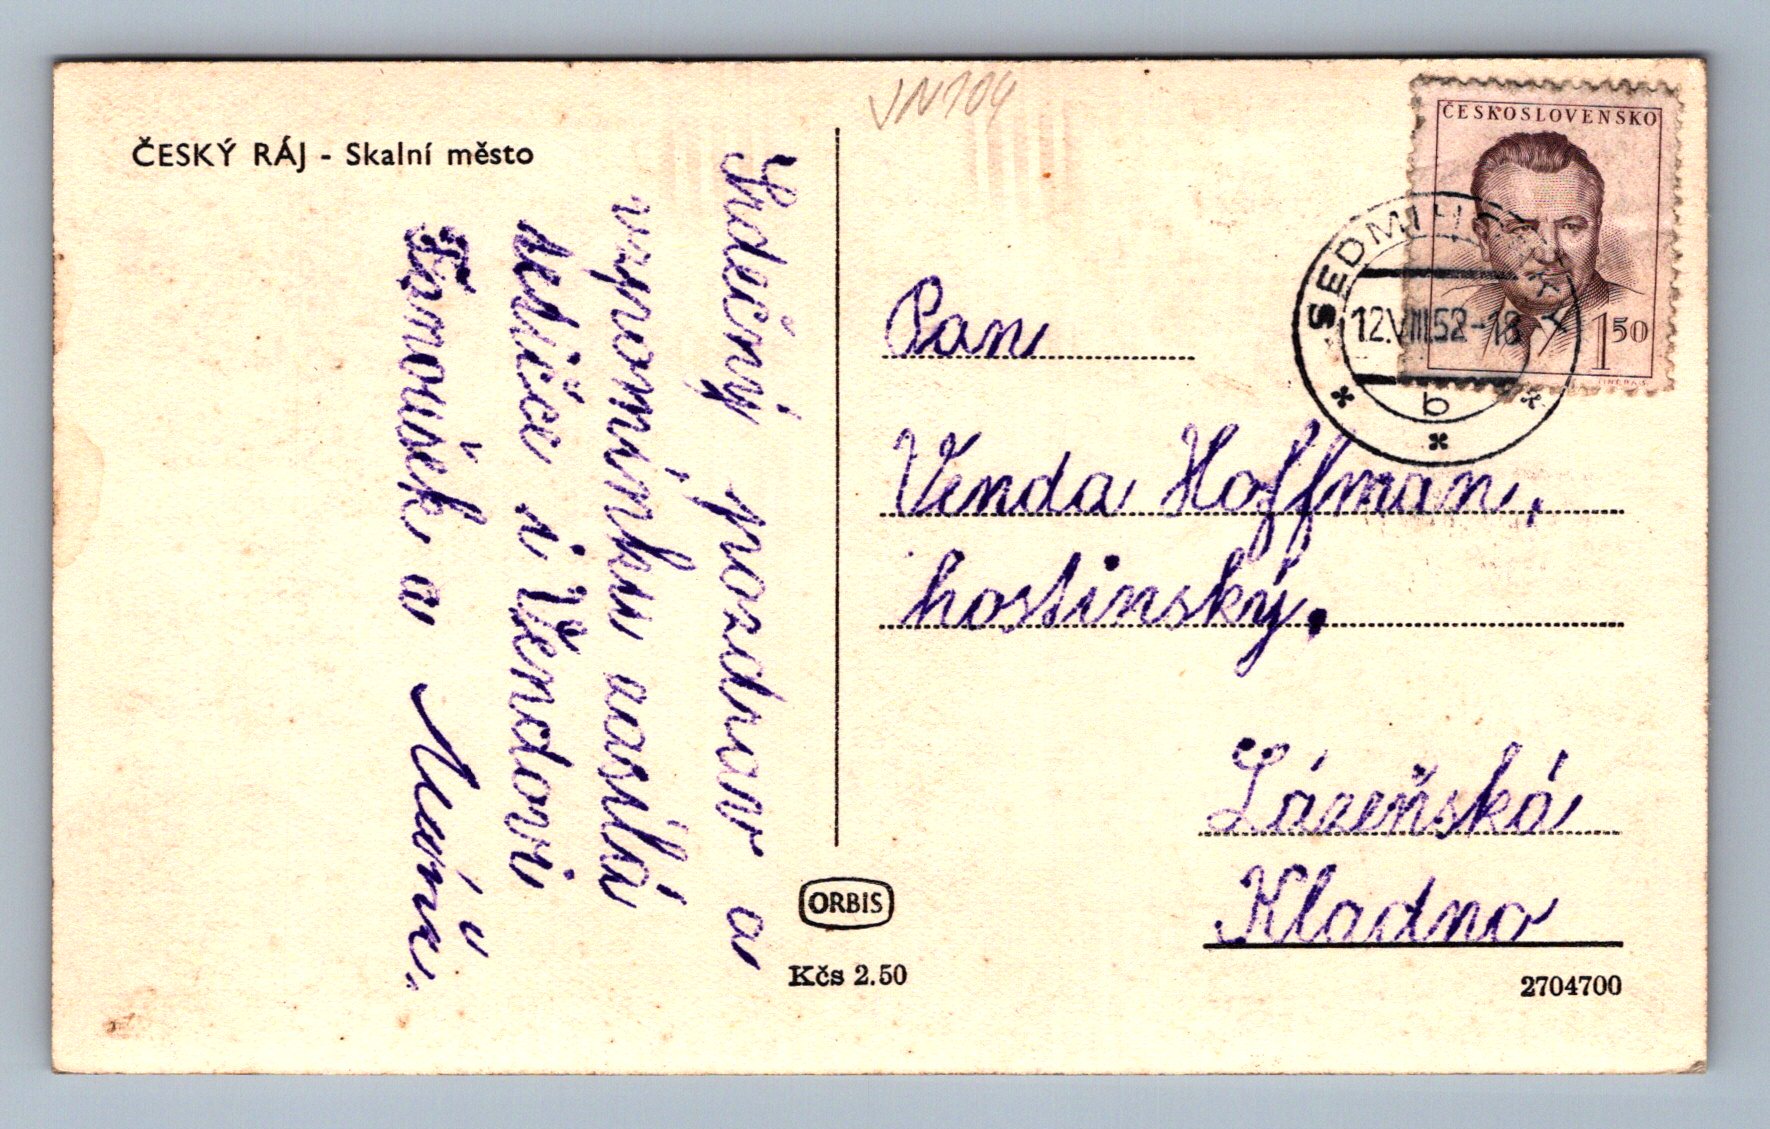 JN104
ČESKÝ RÁJ - Skalní město
Srdečný pozdrav a
vzpomínku zasílá
tetičce i Vendovi
Fanoušek a
ČESKOSLOVENSKO
1 50
SEDMIHORKY
12.VIII.52-18
b
Pan
Venda Hoffman,
hostinský.
Lázeňská
Kladno
ORBIS
Kčs 2.50
2704700